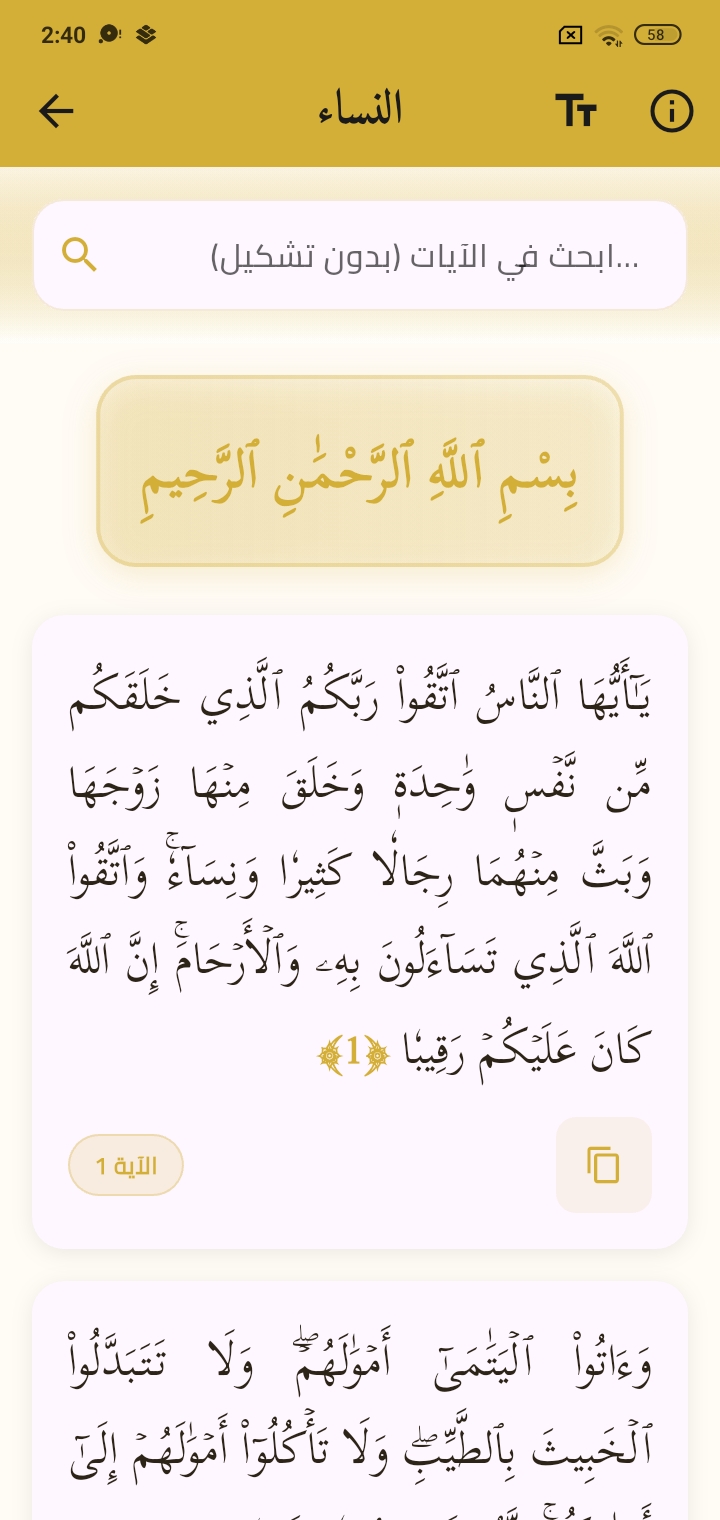 2:40
58
النساء
ابحث في الآيات (بدون تشكيل)...
بِسْمِ ٱللَّهِ ٱلرَّحْمَٰنِ ٱلرَّحِيمِ
يَٰٓأَيُّهَا ٱلنَّاسُ ٱتَّقُوا۟ رَبَّكُمُ ٱلَّذِي خَلَقَكُم
مِّن نَّفۡسٖ وَٰحِدَةٖ وَخَلَقَ مِنۡهَا زَوۡجَهَا
وَبَثَّ مِنۡهُمَا رِجَالٗا كَثِيرٗا وَنِسَآءٗۚ وَٱتَّقُوا۟
ٱللَّهَ ٱلَّذِي تَسَآءَلُونَ بِهِۦ وَٱلۡأَرۡحَامَۚ إِنَّ ٱللَّهَ
كَانَ عَلَيۡكُمۡ رَقِيبٗا ﴿1﴾
الآية 1
وَءَاتُوا۟ ٱلۡيَتَٰمَىٰٓ أَمۡوَٰلَهُمۡۖ وَلَا تَتَبَدَّلُوا۟
ٱلۡخَبِيثَ بِٱلطَّيِّبِۖ وَلَا تَأۡكُلُوٓا۟ أَمۡوَٰلَهُمۡ إِلَىٰٓ